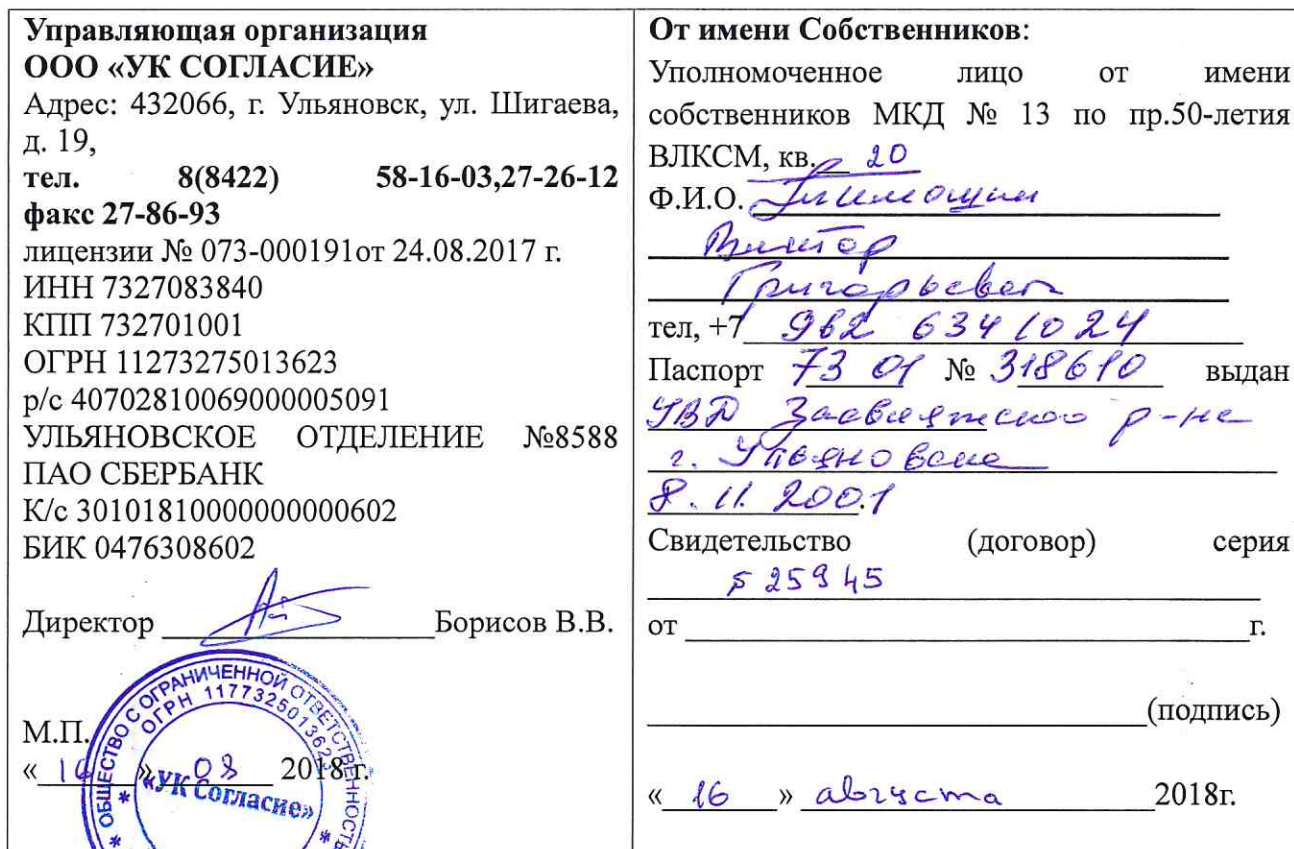 Управляющая организация
ООО «УК СОГЛАСИЕ»
Адрес: 432066, г. Ульяновск, ул. Шигаева,
д. 19,
тел. 8(8422) 58-16-03,27-26-12
факс 27-86-93
лицензии № 073-000191от 24.08.2017 г.
ИНН 7327083840
КПП 732701001
ОГРН 11273275013623
р/с 40702810069000005091
УЛЬЯНОВСКОЕ ОТДЕЛЕНИЕ №8588
ПАО СБЕРБАНК
К/с 30101810000000000602
БИК 0476308602
Директор Борисов В.В.
М.П.
« 16 » 08 2018 г.
ОБЩЕСТВО С ОГРАНИЧЕННОЙ ОТВЕТСТВЕННОСТЬЮ
ОГРН 1177325013623
«УК Согласие»
От имени Собственников:
Уполномоченное лицо от имени
собственников МКД № 13 по пр.50-летия
ВЛКСМ, кв. 20
Ф.И.О. Тимошин
Виктор
Григорьевич
тел, +7 962 634 10 24
Паспорт 73 01 № 318610 выдан
УВД Засвияжского р-на
г. Ульяновска
8.11.2001
Свидетельство (договор) серия
25945
от г.
(подпись)
« 16 » августа 2018г.